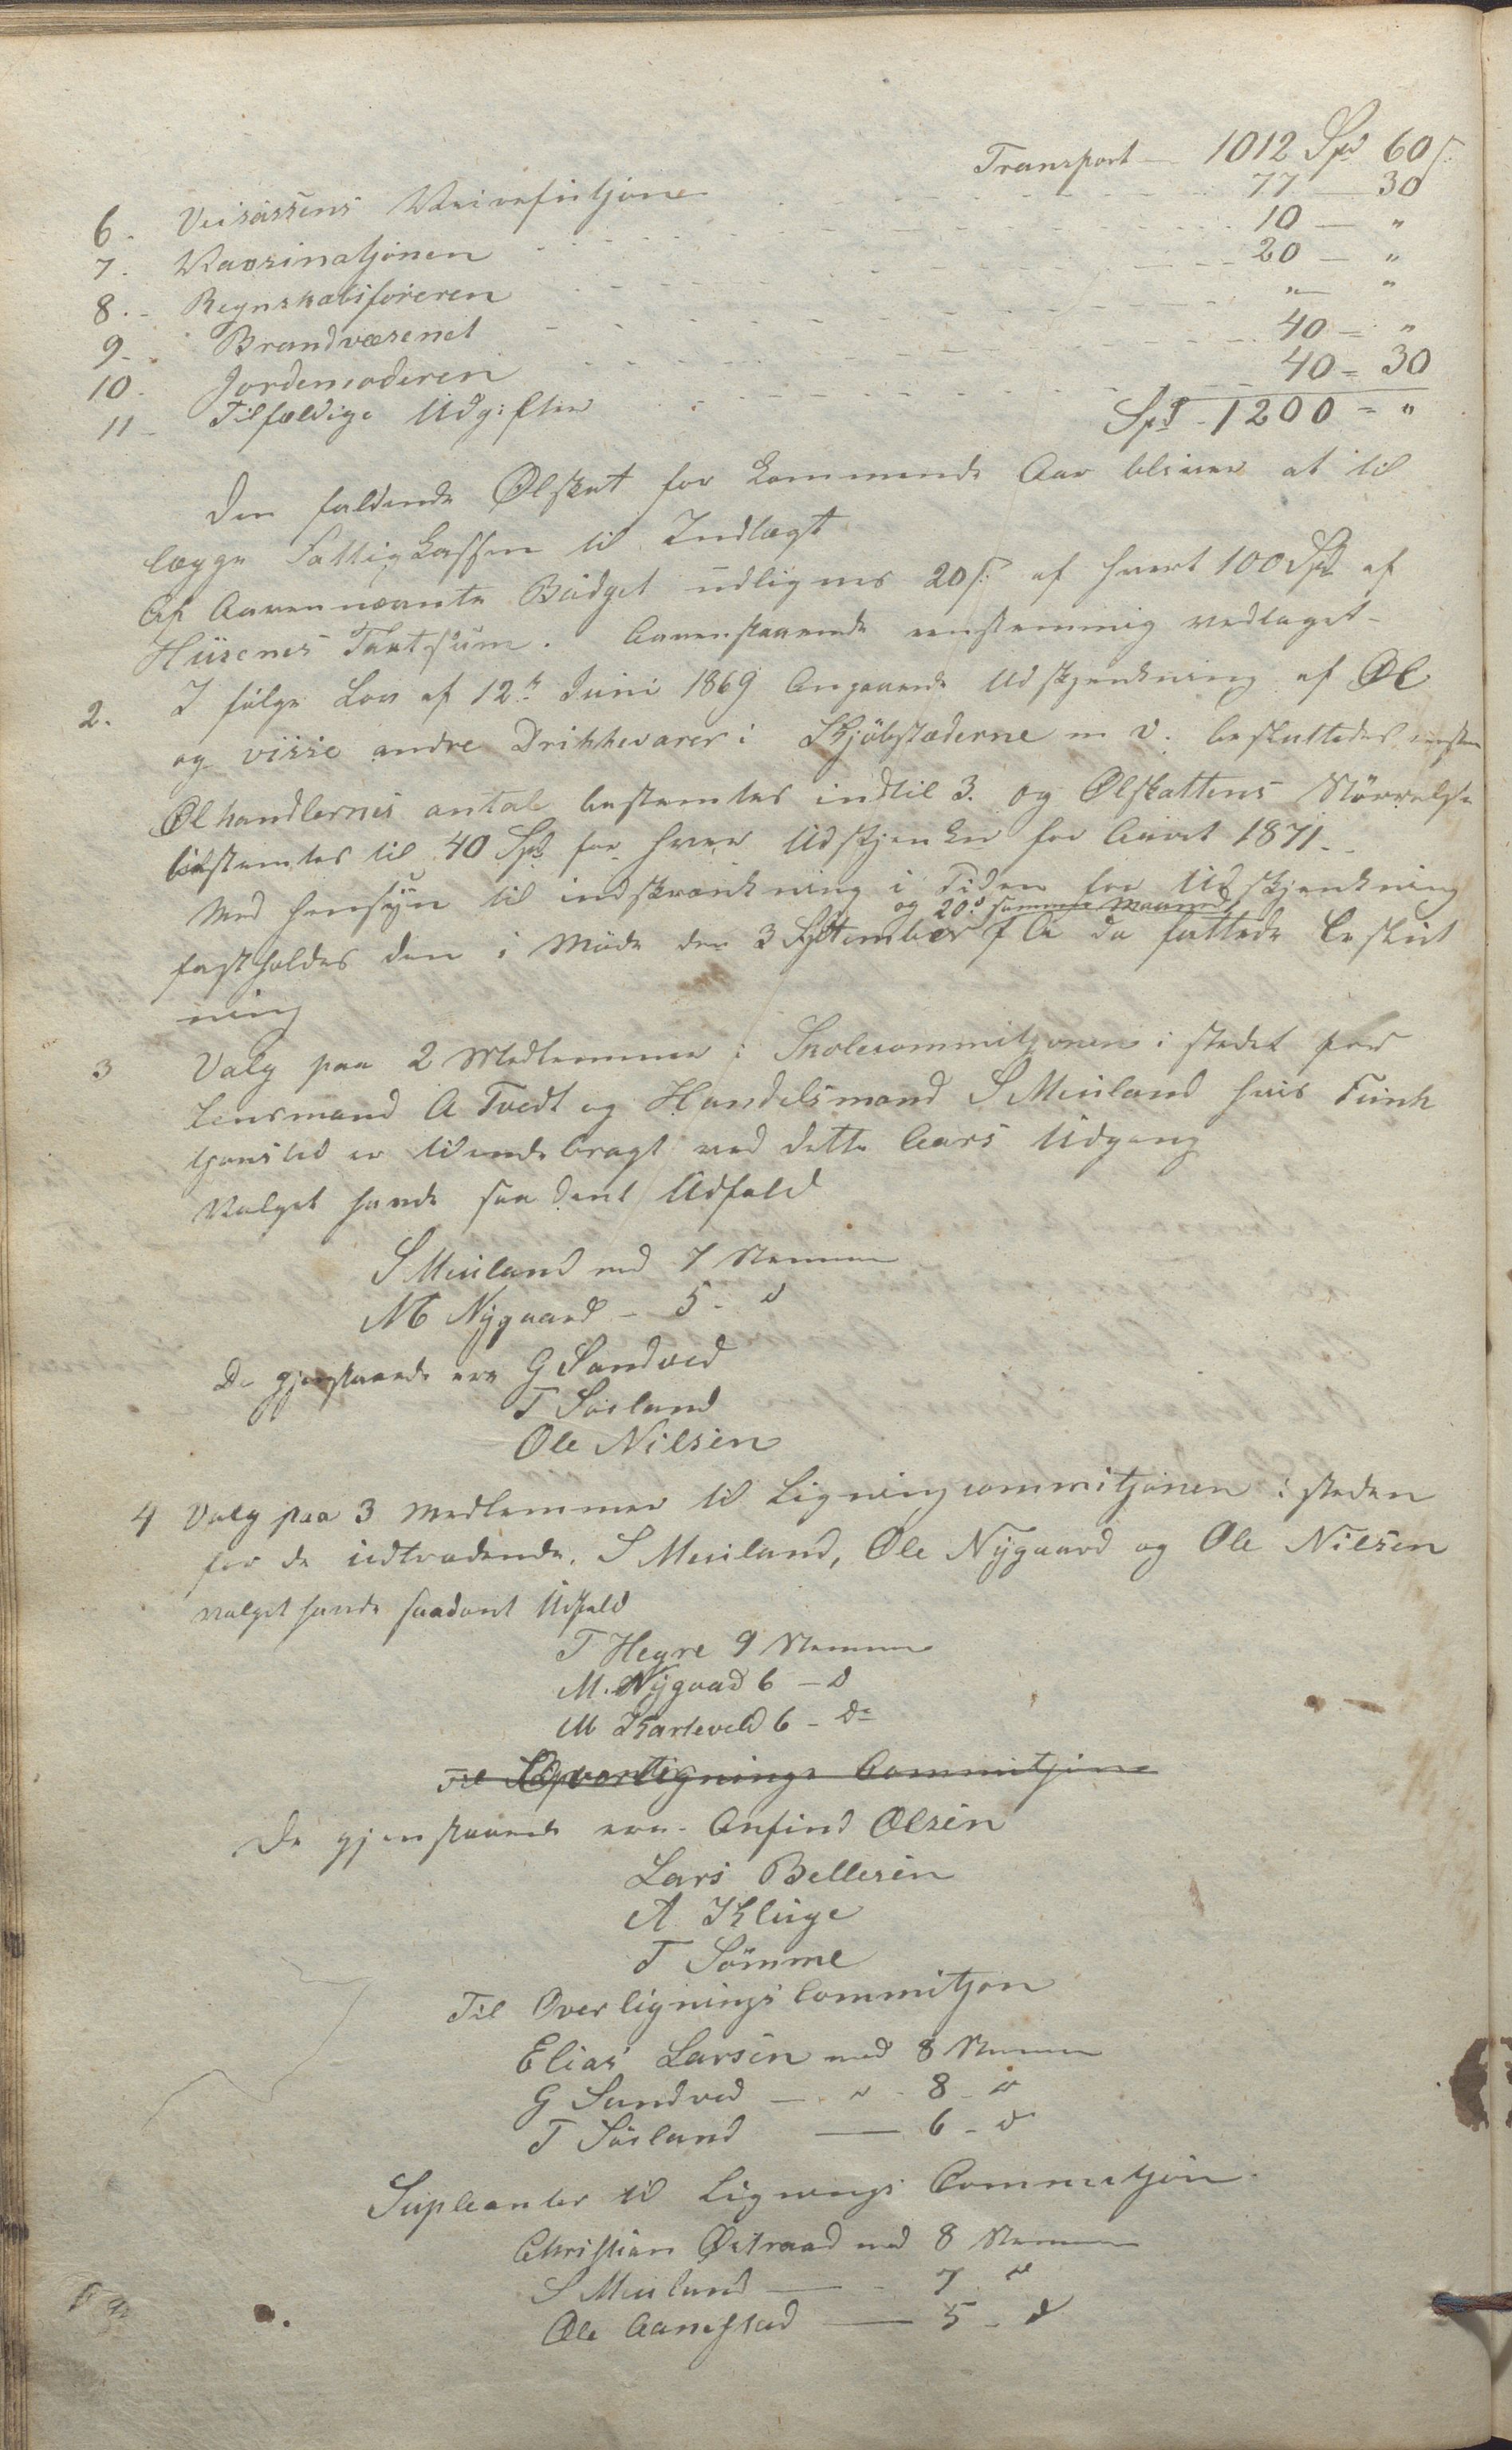 Transport — 1012 Spd 60 s:
6. Veisassens Reivefutjone 77 — 30
7. Vaxinatjonen 10 — "
8. Regnskabsføreren 20 — "
9. Brandvæsenet " — "
10. Jordemoderen 40 — "
11 Tilfældige Udgifter 40 = 30
Spd 1200 = "
Den faldende Ølskat for kommende Aar bliver at til
lægge Fattigkassen til Indtægt
Af Aavennævnte Budget udlignes 20 s: af hvert 100 Spd af
Husenes Taxtsum. Aavenstaaende eenstemmig vedtaget-
2. I følge Lov af 12te Juni 1869 Angaaende Udskjenkning af Øl
og visse andre Drikkevarer i Kjøbstæderne m v. besluttedes
Ølhandlernes antal bestemtes indtil 3. og Ølskattens Størrelse
bestemtes til 40 Spd for hver Udskjenker for Aaret 1871.-
Med hensyn til indskrænkning i Tiden for Udskjenkning
og 20de samme Maaned
fastholdes den i Møde den 3 September f A da fattede Beslut
ning
3 Valg paa 2 Medlemmer i Skolecommitjonen i stedet for
Lensmand A Tvedt og Handelsmand S Meiland hvis Funk
tjonstid er tilendebragt ved dette Aars Udgang
Valget havde saadant Udfald
S Meiland med 7 Stemmer
M Nygaard — 5 - d
De gjenstaaende ere G Sandved
T Søiland
Ole Nilsen
4 Valg paa 3 Medlemmer til Ligningcommitjonen i steden
for de udtrædende. S Meiland, Ole Nygaard og Ole Nilsen
valget havde saadant Udfald
T Hegre 9 Stemmer
M. Nygaad 6 — d
M Karteveld 6 - do
Til Overlignings Commitjone
De gjenstaaende ere - Anfind Olsen
Lars Bellesen
A Kluge
T Sömme
Til OverligningsCommitjon
Elias Larsen med 8 Stemmer
G Sandved — " - 8 - d
T Söiland — 6 - d
Supleanter til Lignings Commitjon
Christian Østraad med 8 Stemmer
S Meiland — - 7 d
Ole Aanestad — 5 - d